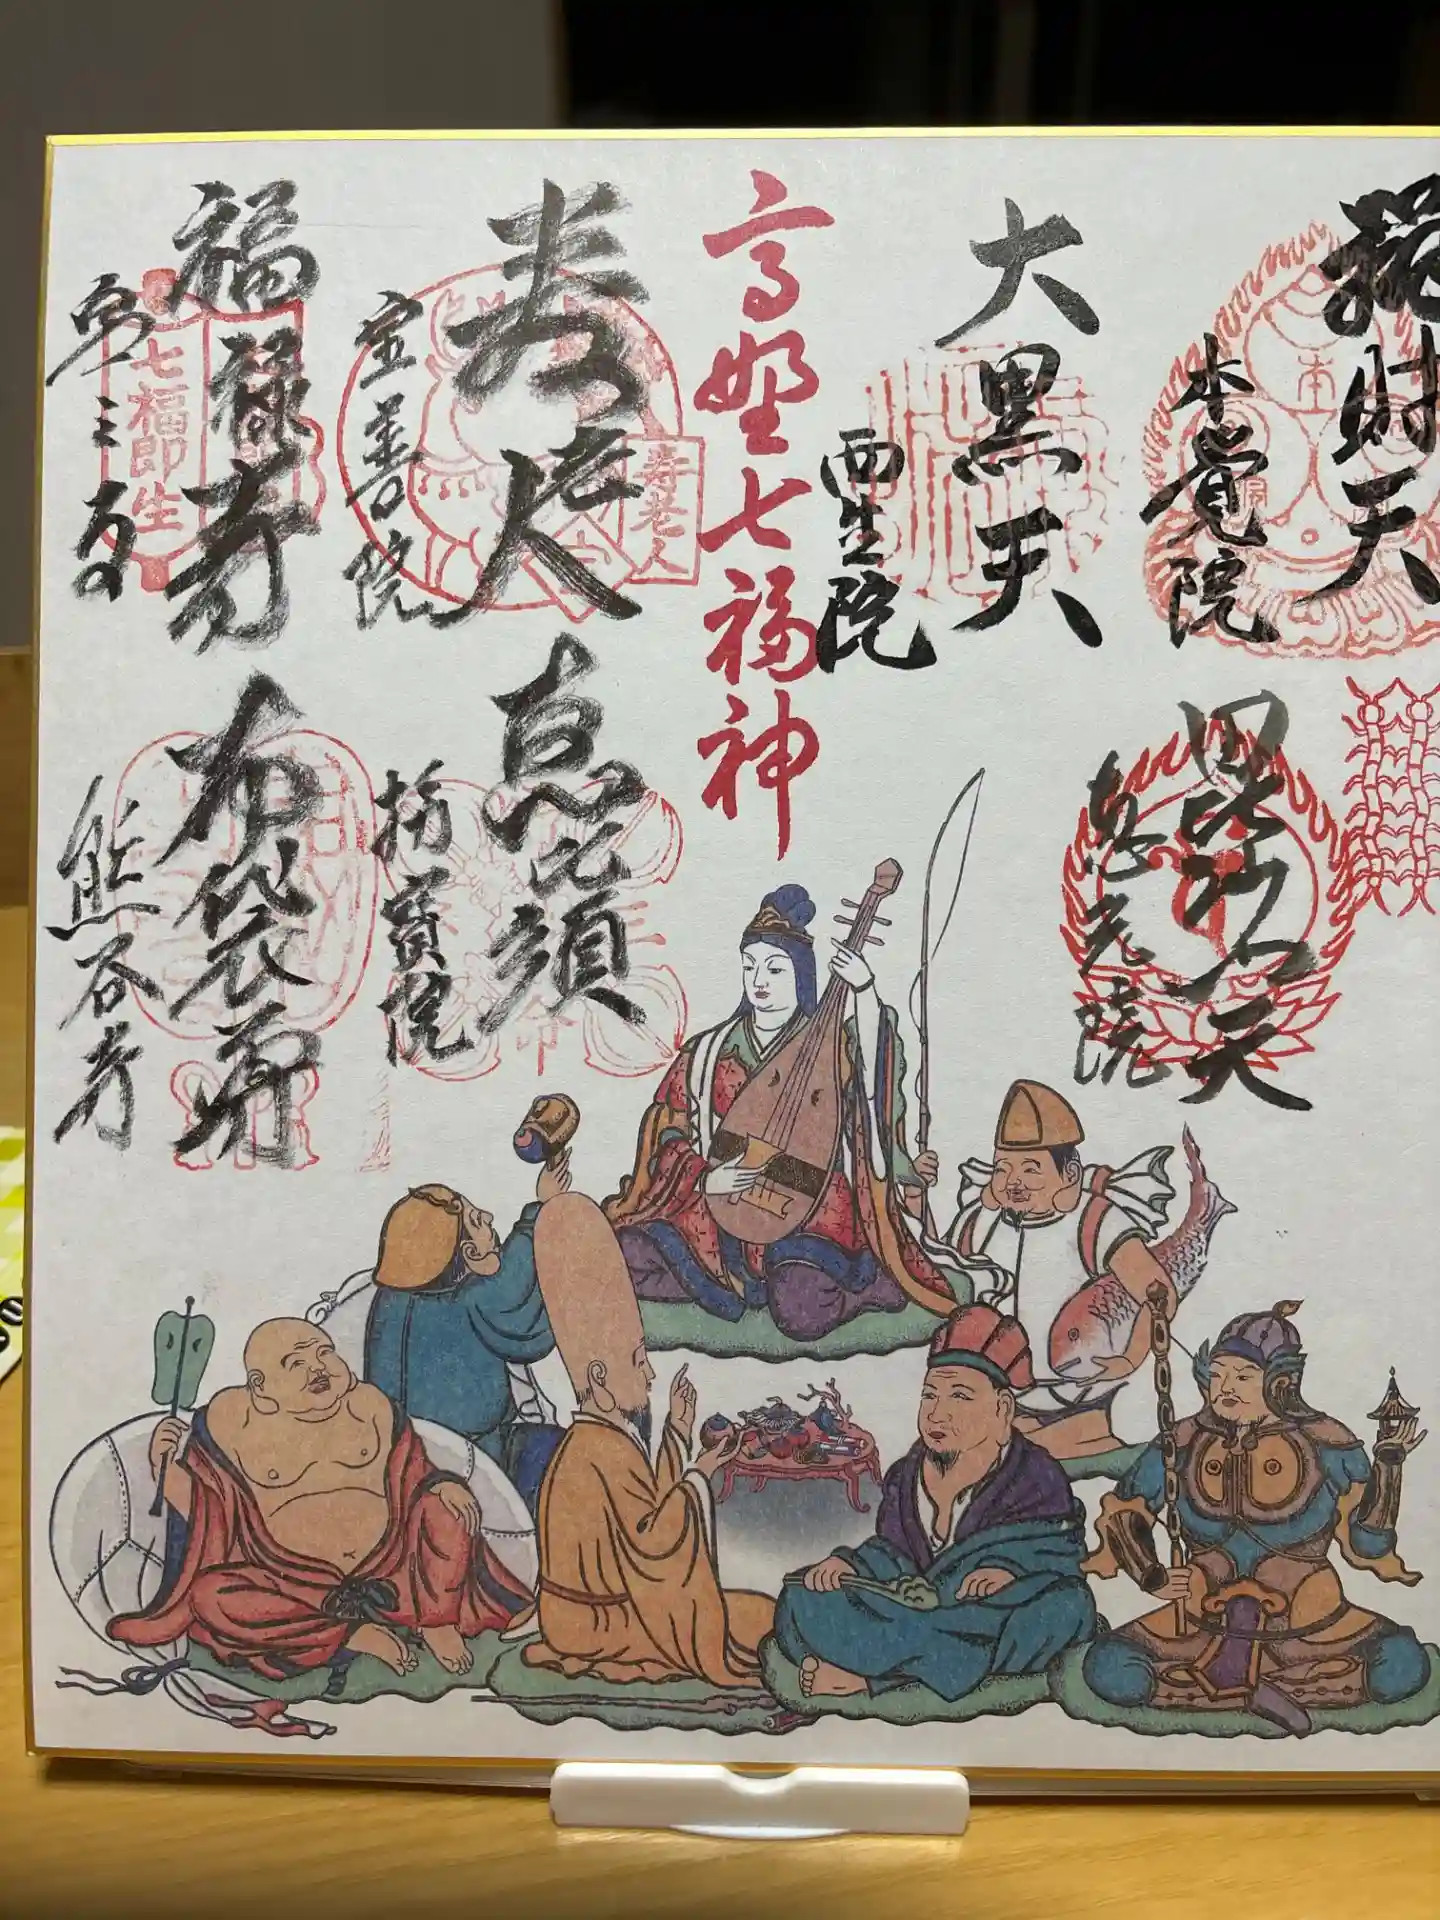 辨財天
本覚院
大黒天
西生院
高野七福神
寿老人
宝善院
寿老人
福禄寿
七福即生
毘沙門天
恵光院
恵比須
布袋尊
熊谷寺